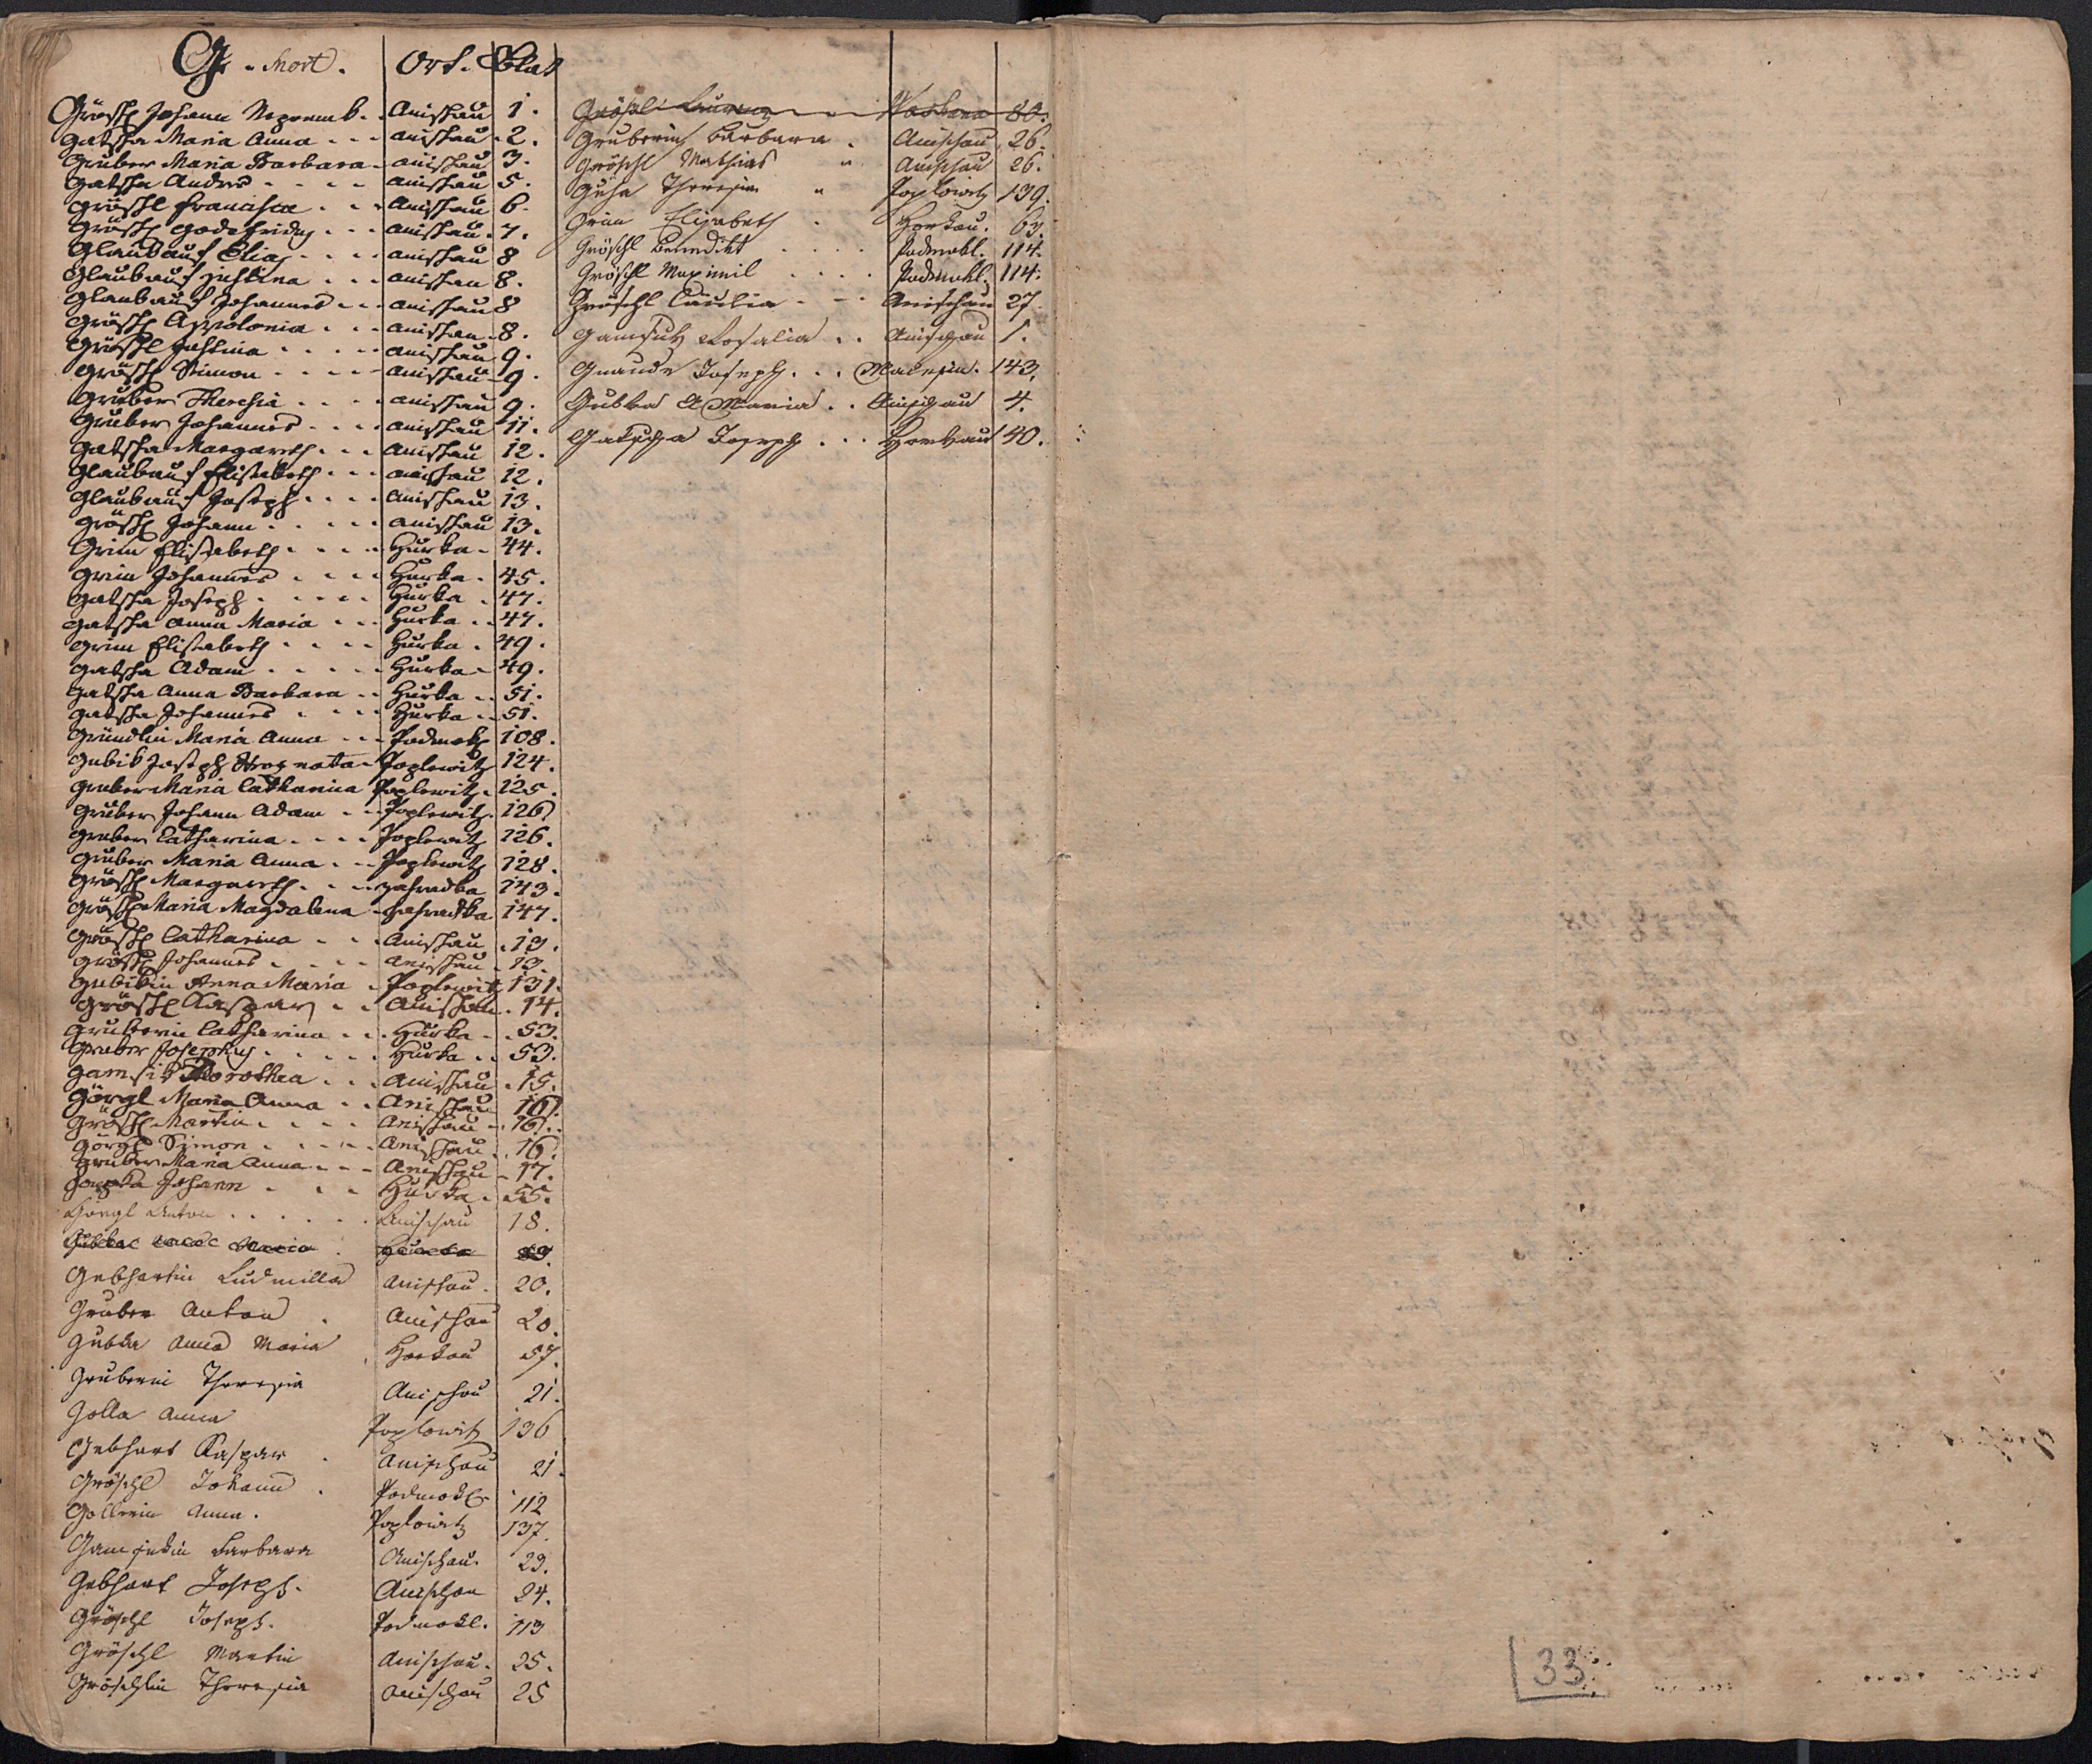 G. Mort. Ort. Blat
Gröschl Johann Nepomuk. Anischau 1.
Gatscha Maria Anna - - - Anischau 2.
Gruber Maria Barbara - Anischau 3.
Gatscha Andres - - - - Anischau 5.
Gröschl Francisca - - - Anischau 6.
Gröschl Godefridus - - - Anischau 7.
Glaubauf Elias - - - - Anischau 8
Glaubauf Justina - - - Anischau 8.
Glaubauf Johannes - - - Anischau 8
Gröschl Appolonia - - - Anischau 8.
Gröschl Justina - - - - - Anischau 9.
Gröschl Simon - - - - - Anischau 9.
Gruber Theresia - - - - Anischau 9.
Gruber Johannes - - - - Anischau 11.
Gatscha Margareth - - - Anischau 12.
Glaubauf Elisabeth - - - Anischau 12.
Glaubauf Joseph - - - - Anischau 13.
Gröschl Johann - - - - - Anischau 13.
Grim Elisabeth - - - - Hurka - 44.
Grim Johannes - - - - Hurka - 45.
Gatscha Joseph - - - - - Hurka - 47.
Gatscha Anna Maria - - - Hurka - - 47.
Grim Elisabeth - - - - Hurka - 49.
Gatscha Adam - - - - - Hurka - 49.
Gatscha Anna Barbara - - Hurka - - 51.
Gatscha Johannes - - - - Hurka - - 51.
Gründlin Maria Anna - - - Podmokl 108.
Gubik Joseph Hroznata - Poplowitz 124.
Gruber Maria Catharina Poplowitz - 125.
Gruber Johann Adam - - Poplowitz. 126
Gruber Catharina - - - - Poplowitz 126.
Gruber Maria Anna - - - Poplowitz 128.
Gröschl Margareth - - - Zahradka 143.
Gröschl Maria Magdalena - Zahradka 147.
Gröschl Catharina - - - Anischau . 13.
Gröschl Johannes - - - - Anischau . 13.
Gubikin Anna Maria - Poplowitz 131.
Gröschl Kaspar - - Anischau . 14.
Gruberin Catharina - - - Hurka - - 53.
Gruber Josephus - - - - - Hurka - - 53.
Gamsik Dorothea - - - Anischau . 15.
Görgl Maria Anna - - Anischau 16.
Gröschl Martin - - - - Anischau - 16.
Görgl Simon - - - - - Anischau . 16.
Gruber Maria Anna - - - Anischau - 17.
Johann - - - Hurka . 55.
Görgl Anton . . . . . . Anischau 18.
Maria
Gebhartin Ludmilla Anischau . 20.
Gruber Anton . Anischau 20.
Gubka Anna Maria Horkau 57.
Gruberin Theresia Anischau 21.
Golla Anna Poplowitz 136
Gebhart Kaspar . Anischau 21.
Gröschl Johann . Podmokl. 112
Gollerin Anna . Poplowitz 137.
Gamsikin Barbara Anischau. 23.
Gebhart Joseph. Anischau 24.
Gröschl Joseph. Podmokl. 113
Gröschl Martin Anischau. 25.
Gröschlin Theresia Anischau 25
Gröschl 80.
Gruberin Barbara . Anischau 26.
Gröschl Mathias " Anischau 26.
Guha Theresia " Poplowitz 139.
Grim Elisabeth . Horkau. 63.
Gröschl Benedikt . . . . Podmokl. 114.
Gröschl Maximil . . . . Podmokl. 114.
Gröschl Cäcilia - - - Anischau 27.
Gamsik Rosalia . . Anischau 1.
Joseph . . . 143.
Gubka A Maria . . Anischau 4.
Gatscha Joseph . . . Horkau 40.
33